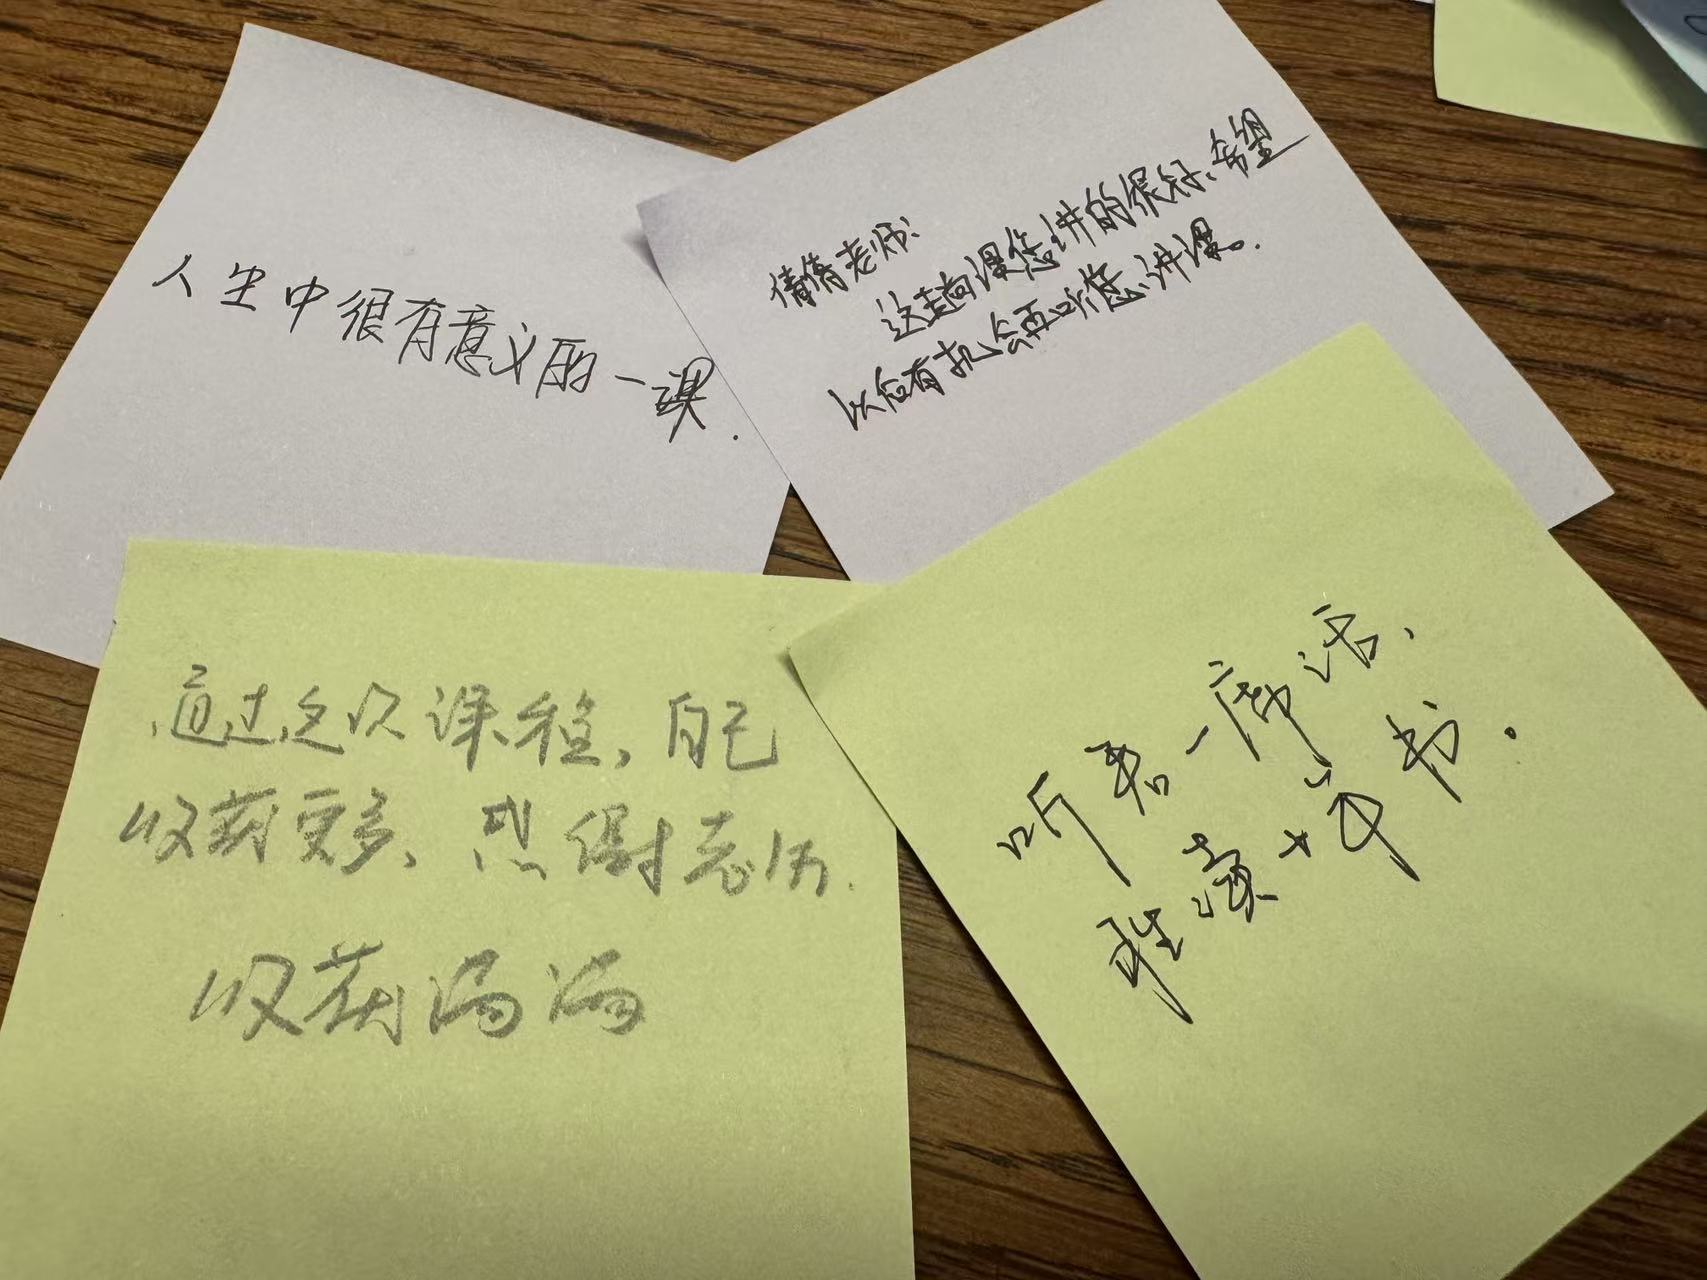 人生中很有意义的一课.
倩倩老师:
这趟课您讲的很好、希望
以后有机会再听您讲课。
通过这次课程,自己
收获更多、感谢老师.
收获满满
听君一席话、
胜读十年书。